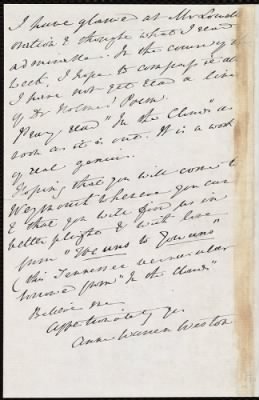 I have glanced at Mr Lowell's
oration & thought what I read
admirable. In the course of the
week, I hope to compass it all
I have not yet read a line
of Dr Holmes' Poem.
Pray, read "In the Clouds" as
soon as it is out. It is a work
of real genius.
Hoping that you will come to
Weymouth whenever you can
& that you will find us in
better plight & with love
from "We uns to You uns"
(this Tennessee vernacular
borrowed from "In the Clouds"
Believe me
Affectionately yrs
Anne Warren Weston